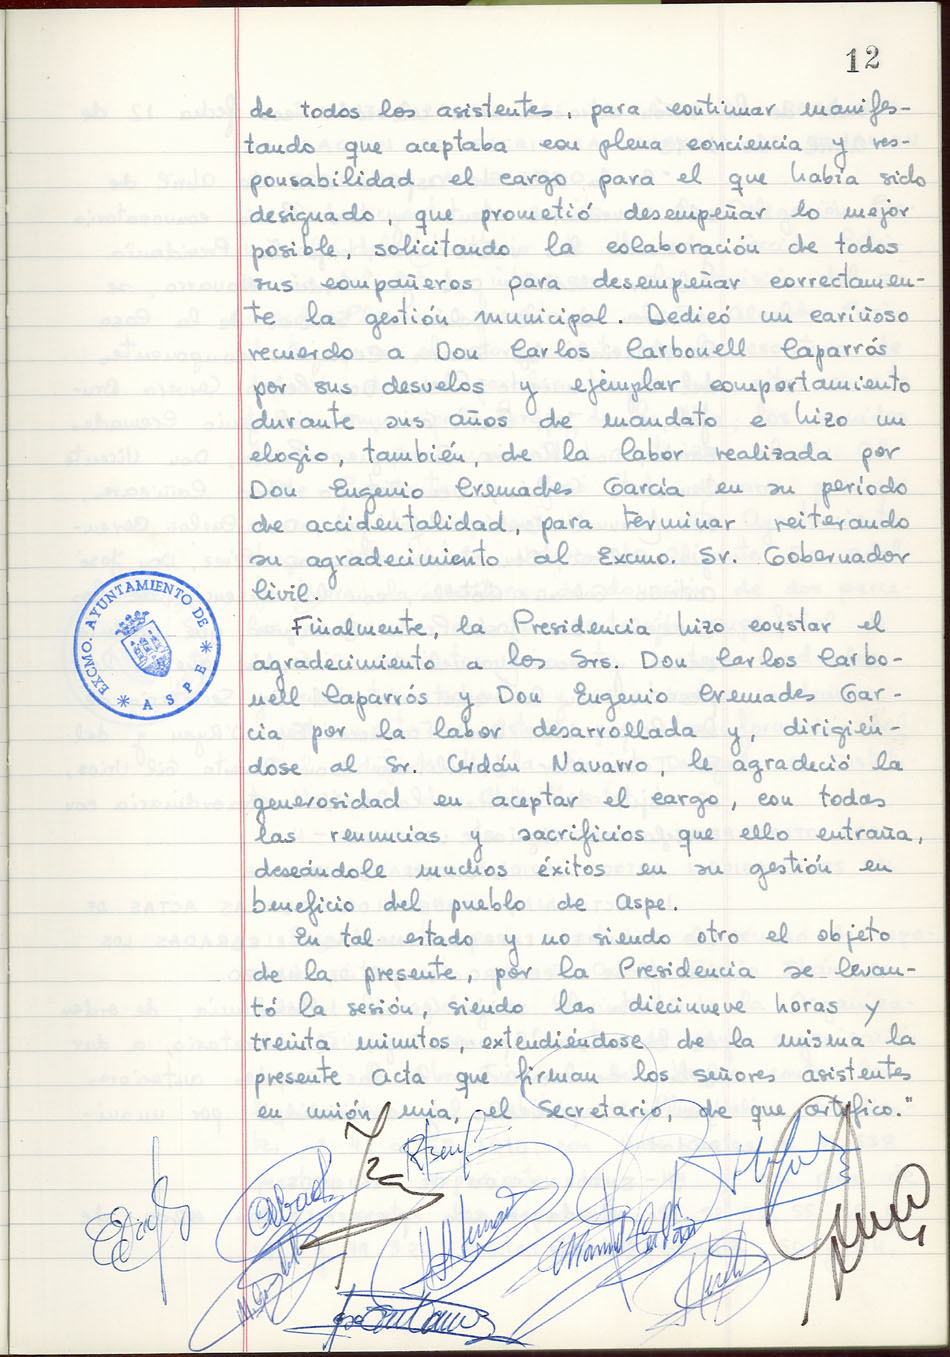 12
de todos los asistentes, para continuar manifes-
tando que aceptaba con plena conciencia y res-
ponsabilidad el cargo para el que había sido
designado que prometió desempeñar lo mejor
posible, solicitando la colaboración de todos
sus compañeros para desempeñar correctamen-
te la gestión municipal. Dedicó un cariñoso
recuerdo a Don Carlos Carbonell Caparrós
por sus desvelos y ejemplar comportamiento
durante sus años de mandato e hizo un
elogio, también, de la labor realizada por
Don Eugenio Cremades García en su período
de accidentalidad, para terminar reiterando
su agradecimiento al Excmo. Sr. Gobernador
Civil.
Finalmente, la Presidencia hizo constar el
agradecimiento a los Srs. Don Carlos Carbo-
nell Caparrós y Don Eugenio Cremades Gar-
cía por la labor desarrollada y, dirigién-
dose al Sr. Cerdán Navarro, le agradeció la
generosidad en aceptar el cargo, con todas
las renuncias y sacrificios que ello entraña,
deseándole muchos éxitos en su gestión en
beneficio del pueblo de Aspe.
En tal estado y no siendo otro el objeto
de la presente, por la Presidencia se levan-
tó la sesión, siendo las diecinueve horas y
treinta minutos, extendiéndose de la misma la
presente Acta que firman los señores asistentes
en unión mía, el Secretario, de que certifico."
EXCMO. AYUNTAMIENTO DE
* ASPE *